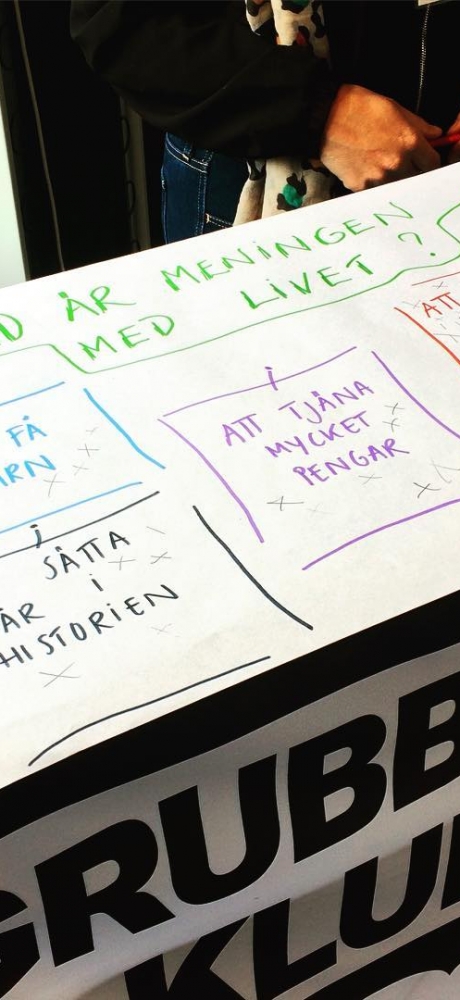 D ÄR MENINGEN
MED LIVET ?
ATT
FÅ
ARN
ATT TJÄNA
MYCKET
PENGAR
SÄTTA
ÅR i
HISTORIEN
GRUBB
KLU